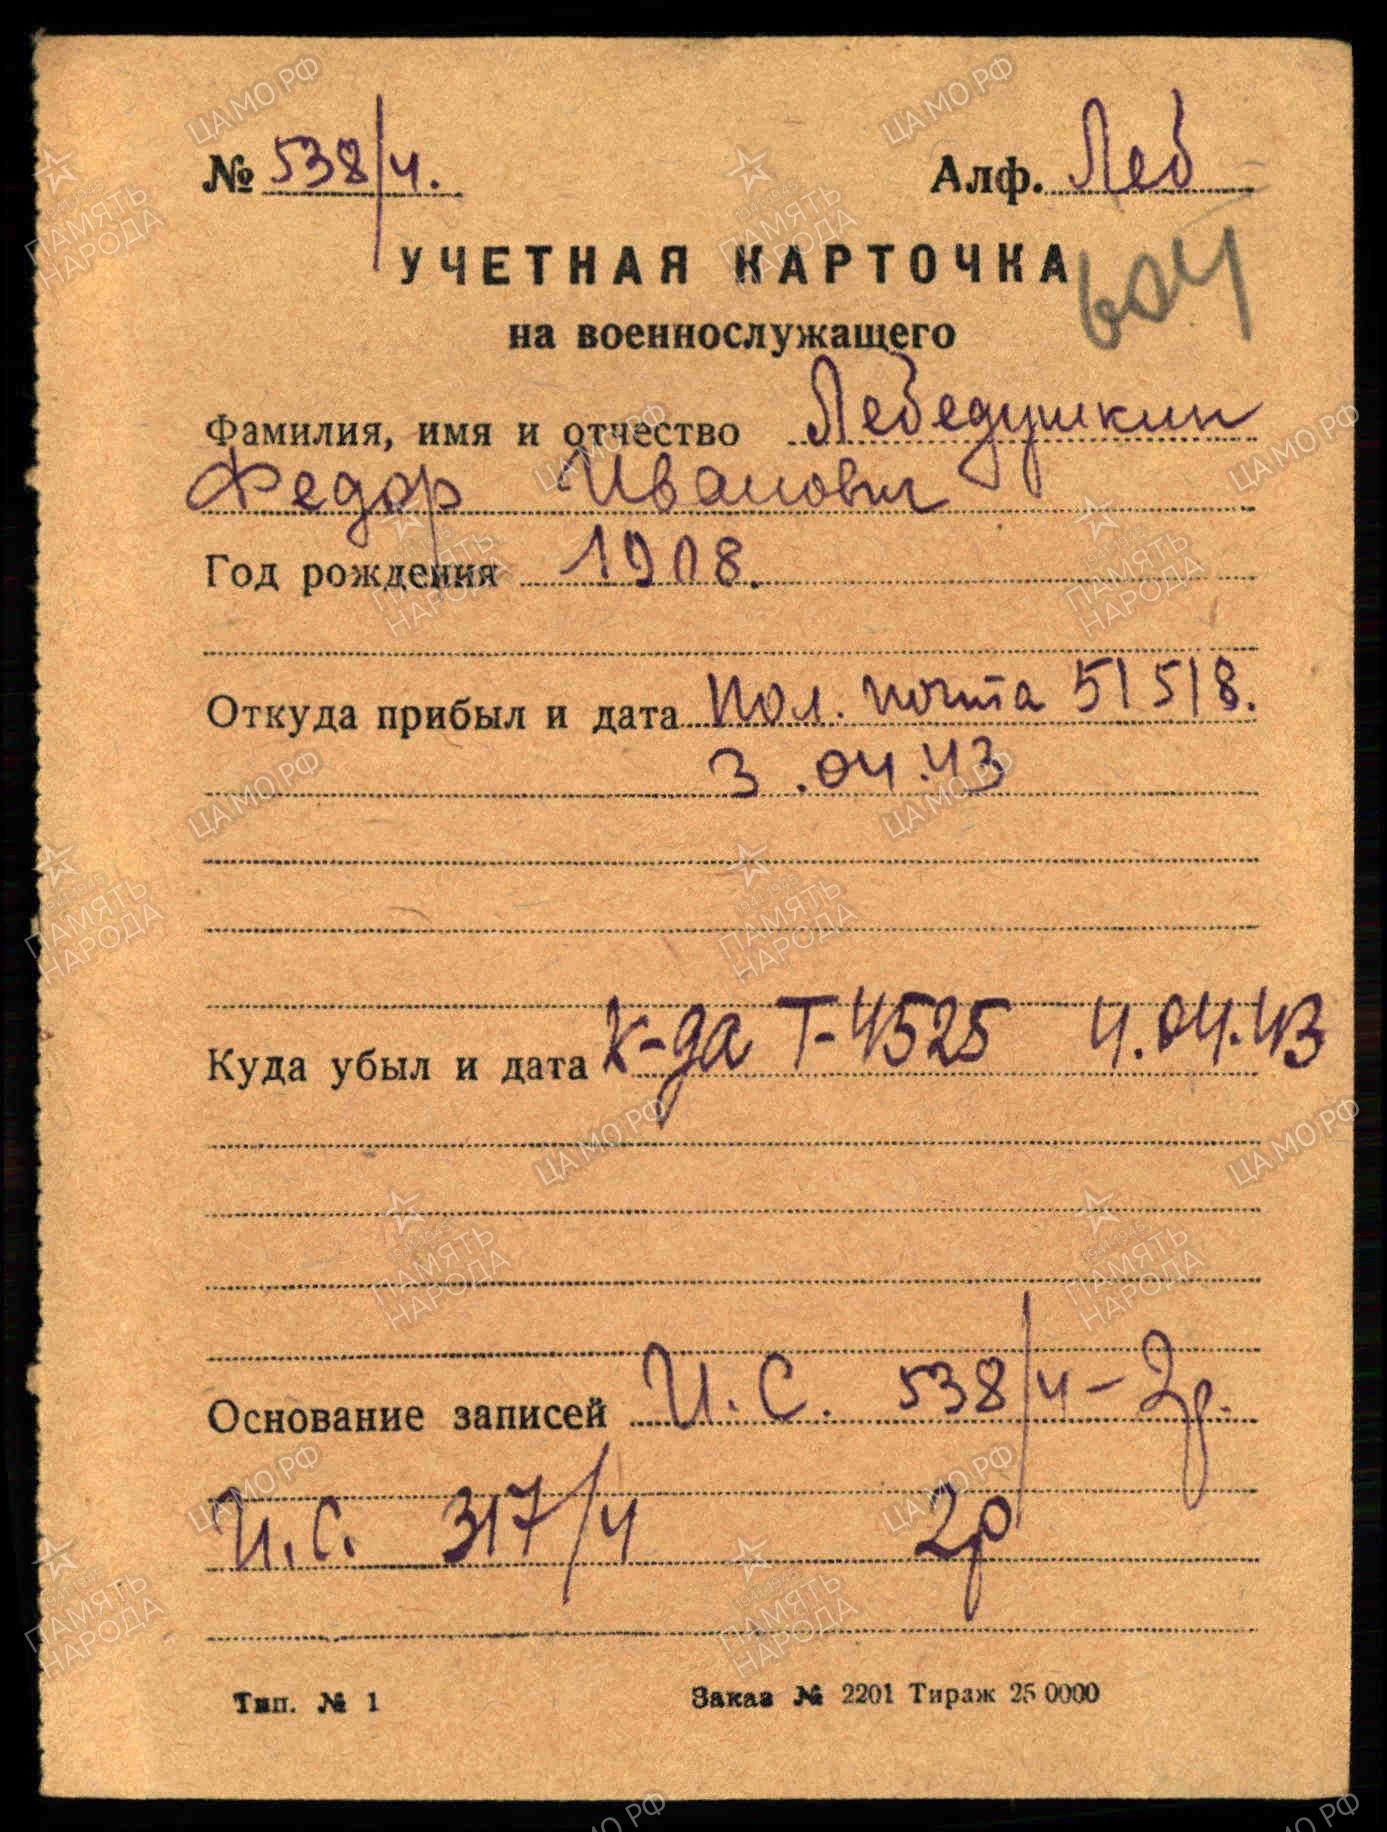 № 538/ч. Алф. Леб
604
УЧЕТНАЯ КАРТОЧКА
на военнослужащего
Фамилия, имя и отчество Лебедушкин
Федор Иванович
Год рождения 1908.
Откуда прибыл и дата Пол. почта 51518.
3.04.43
Куда убыл и дата к-да Т-4525 4.04.43
Основание записей И.С. 538/ч - 2р.
И.С. 317/ч 2р
Тип. № 1 Заказ № 2201 Тираж 25 0000
ЦАМО.РФ
ПАМЯТЬ
НАРОДА